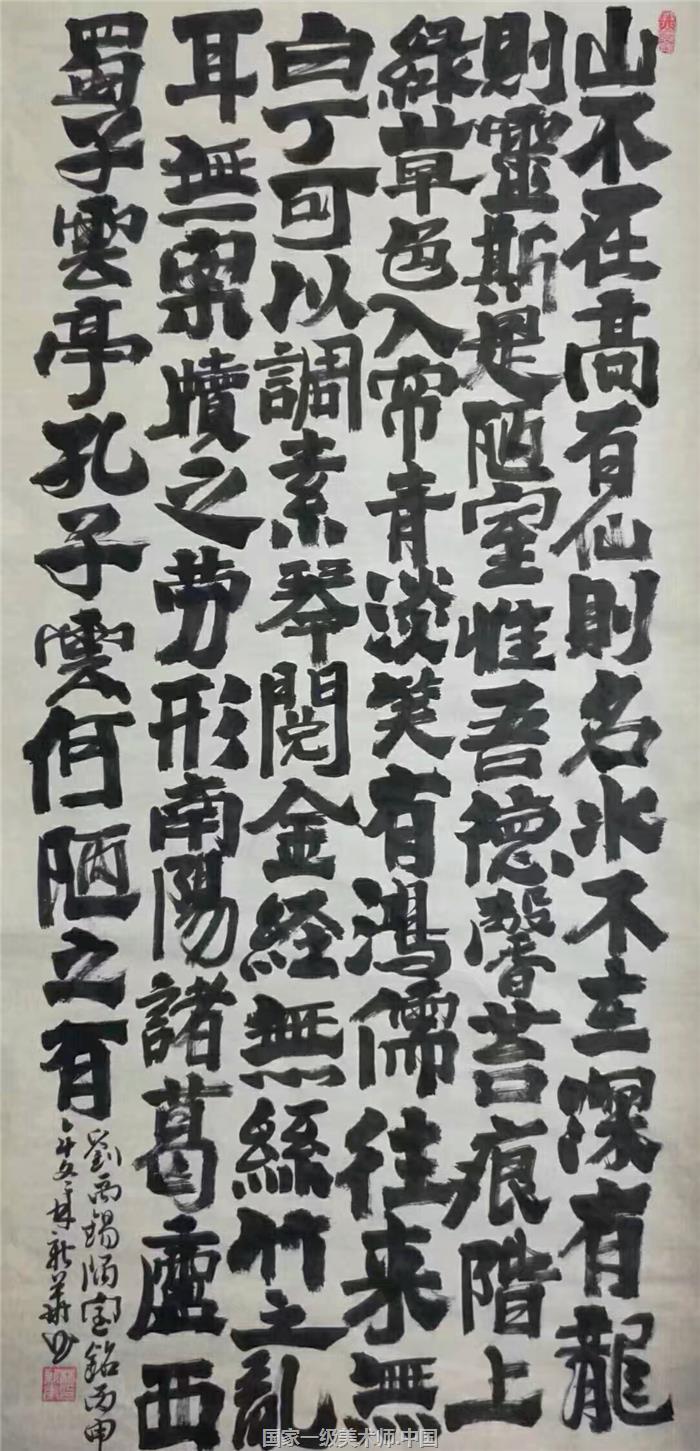 山不在高有仙則名水不在深有龍
則靈斯是陋室惟吾德馨苔痕階上
綠草色入帘青淡笑有鴻儒往来無
白丁可以調素琴閱金経無絲竹之亂
耳無案牘之劳形南陽諸葛廬西
蜀子雲亭孔子雲何陋之有
劉禹锡陋室銘丙申
国家一级美术师.中国